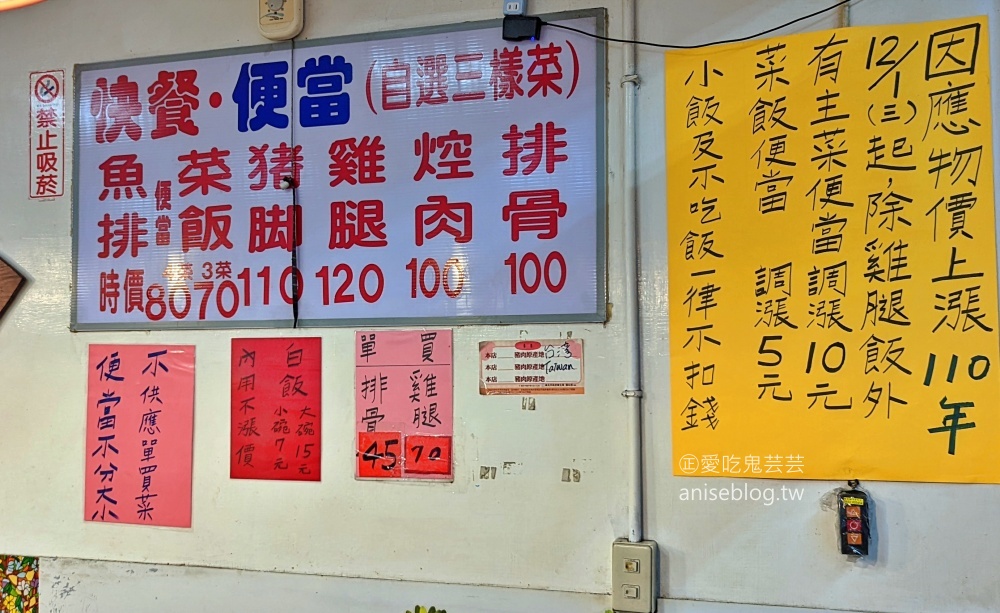 禁止吸菸
快餐·便當(自選三樣菜)
排骨 100
焢肉 100
雞腿 120
猪脚 110
菜飯便當 4菜 80 3菜 70
魚排 時價
因應物價上漲 110年
12/1(三)起,除雞腿飯外
有主菜便當調漲10元
菜飯便當 調漲5元
小飯及不吃飯一律不扣錢
買雞腿 70
單排骨 45
本店 豬肉原產地 台湾
本店 豬肉原產地 Taiwan
本店 豬肉原產地
白飯 大碗15元
小碗7元
內用不漲價
不供應單買菜
便當不分大小
正愛吃鬼芸芸
aniseblog.tw